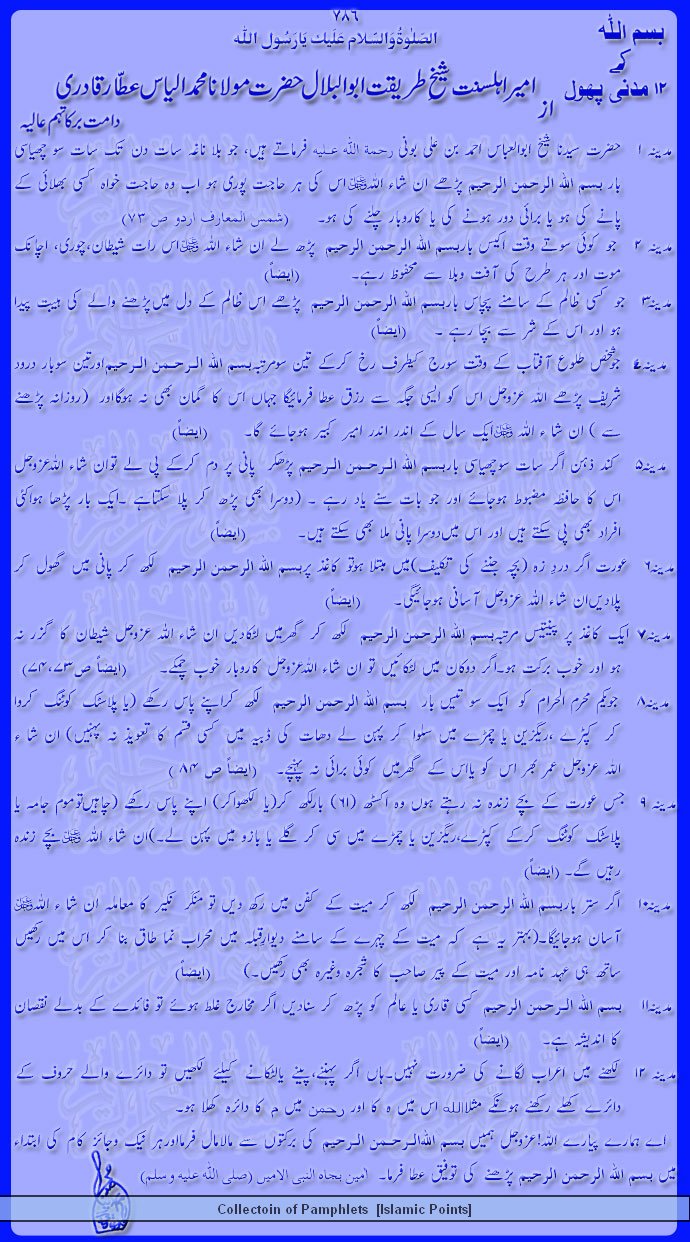 ٧٨٦
الصلوٰۃ والسلام علیک یارسول اللہ
بسم اللہ
کے
١٢ مدنی پھول
از
امیر اہلسنت شیخ طریقت ابوالبلال حضرت مولانا محمد الیاس عطار قادری
دامت برکاتہم عالیہ
مدینہ ١ حضرت سیدنا شیخ ابوالعباس احمد بن علی بونی رحمة الله عليه فرماتے ہیں، جو بلا ناغہ سات دن تک سات سو چھیاسی
بار بسم الله الرحمن الرحيم پڑھے ان شاء اللہ عزوجل اس کی ہر حاجت پوری ہو اب وہ حاجت خواہ کسی بھلائی کے
پانے کی ہو یا برائی دور ہونے کی یا کاروبار چلنے کی ہو۔ (شمس المعارف اردو ص ٧٣)
مدینہ ٢ جو کوئی سوتے وقت اکیس بار بسم الله الرحمن الرحيم پڑھ لے ان شاء اللہ عزوجل اس رات شیطان، چوری، اچانک
موت اور ہر طرح کی آفت وبلا سے محفوظ رہے۔ (ایضاً)
مدینہ ٣ جو کسی ظالم کے سامنے پچاس بار بسم الله الرحمن الرحيم پڑھے اس ظالم کے دل میں پڑھنے والے کی ہیبت پیدا
ہو اور اس کے شر سے بچا رہے ۔ (ایضاً)
مدینہ ٤ جوشخص طلوع آفتاب کے وقت سورج کیطرف رخ کرکے تین سومرتبہ بسم الله الرحمن الرحيم اورتین سوبار درود
شریف پڑھے اللہ عزوجل اس کو ایسی جگہ سے رزق عطا فرمائیگا جہاں اس کا گمان بھی نہ ہوگا اور (روزانہ پڑھنے
سے ) ان شا ء اللہ عزوجل ایک سال کے اندر اندر امیر کبیر ہوجائے گا۔ (ایضاً)
مدینہ ٥ کند ذہن اگر سات سوچھیاسی بار بسم الله الرحمن الرحيم پڑھکر پانی پر دم کرکے پی لے توان شاء اللہ عزوجل
اس کا حافظہ مضبوط ہوجائے اور جو بات سنے یاد رہے ۔ (دوسرا بھی پڑھ کر پلا سکتاہے ۔ایک بار پڑھا ہوا کئی
افراد بھی پی سکتے ہیں اور اس میں دوسرا پانی ملا بھی سکتے ہیں۔ (ایضاً)
مدینہ ٦ عورت اگر درد زہ (بچہ جننے کی تکلیف) میں مبتلا ہوتو کاغذ پر بسم الله الرحمن الرحيم لکھ کر پانی میں گھول کر
پلادیں ان شاء اللہ عزوجل آسانی ہوجائیگی۔ (ایضاً)
مدینہ ٧ ایک کاغذ پر پینتیس مرتبہ بسم الله الرحمن الرحيم لکھ کر گھرمیں لٹکادیں ان شاء اللہ عزوجل شیطان کا گزر نہ
ہو اور خوب برکت ہو۔ اگر دوکان میں لٹکائیں تو ان شاء اللہ عزوجل کاروبار خوب چمکے۔ (ایضاً ص٧٣،٧٤)
مدینہ ٨ جویکم محرم الحرام کو ایک سوتیس بار بسم الله الرحمن الرحيم لکھ کراپنے پاس رکھے (یا پلاسٹک کوٹنگ کروا
کر کپڑے ،ریگزین یا چمڑے میں سلوا کر پہن لے دھات کی ڈبیہ میں کسی قسم کا تعویذ نہ پہنیں) ان شا ء
اللہ عزوجل عمر بھر اس کو یا اس کے گھرمیں کوئی برائی نہ پہنچے۔ (ایضاً ص ٨٤)
مدینہ ٩ جس عورت کے بچے زندہ نہ رہتے ہوں وہ اکسٹھ (٦١) بارلکھ کر (یا لکھواکر) اپنے پاس رکھے (چاہیں توموم جامہ یا
پلاسٹک کوٹنگ کرکے کپڑے، ریگزین یا چمڑے میں سی کر گلے یا بازو میں پہن لے۔) ان شاء اللہ عزوجل بچے زندہ
رہیں گے۔ (ایضاً)
مدینہ ١٠ اگر ستر بار بسم الله الرحمن الرحيم لکھ کر میت کے کفن میں رکھ دیں تو منکر نکیر کا معاملہ ان شا ء اللہ عزوجل
آسان ہوجائیگا۔ (بہتر یہ ہے کہ میت کے چہرے کے سامنے دیوارِقبلہ میں محراب نما طاق بنا کر اس میں رکھیں
ساتھ ہی عہد نامہ اور میت کے پیر صاحب کا شجرہ وغیرہ بھی رکھیں۔) (ایضاً)
مدینہ ١١ بسم الله الرحمن الرحيم کسی قاری یا عالم کو پڑھ کر سنادیں اگر مخارج غلط ہوئے تو فائدے کے بدلے نقصان
کا اندیشہ ہے۔ (ایضاً)
مدینہ ١٢ لکھنے میں اعراب لگانے کی ضرورت نہیں۔ ہاں اگر پہننے، پینے یالٹکانے کیلئے لکھیں تو دائرے والے حروف کے
دائرے کھلے رکھنے ہونگے مثلا الله اس میں ہ کا اور رحمن میں م کا دائرہ کھلا ہو۔
اے ہمارے پیارے اللہ! عزوجل ہمیں بسم الله الرحمن الرحيم کی برکتوں سے مالامال فرما اورہر نیک وجائز کام کی ابتداء
میں بسم الله الرحمن الرحيم پڑھنے کی توفیق عطا فرما۔ امين بجاه النبى الامين (صلى الله عليه وسلم)
Collectoin of Pamphlets [Islamic Points]